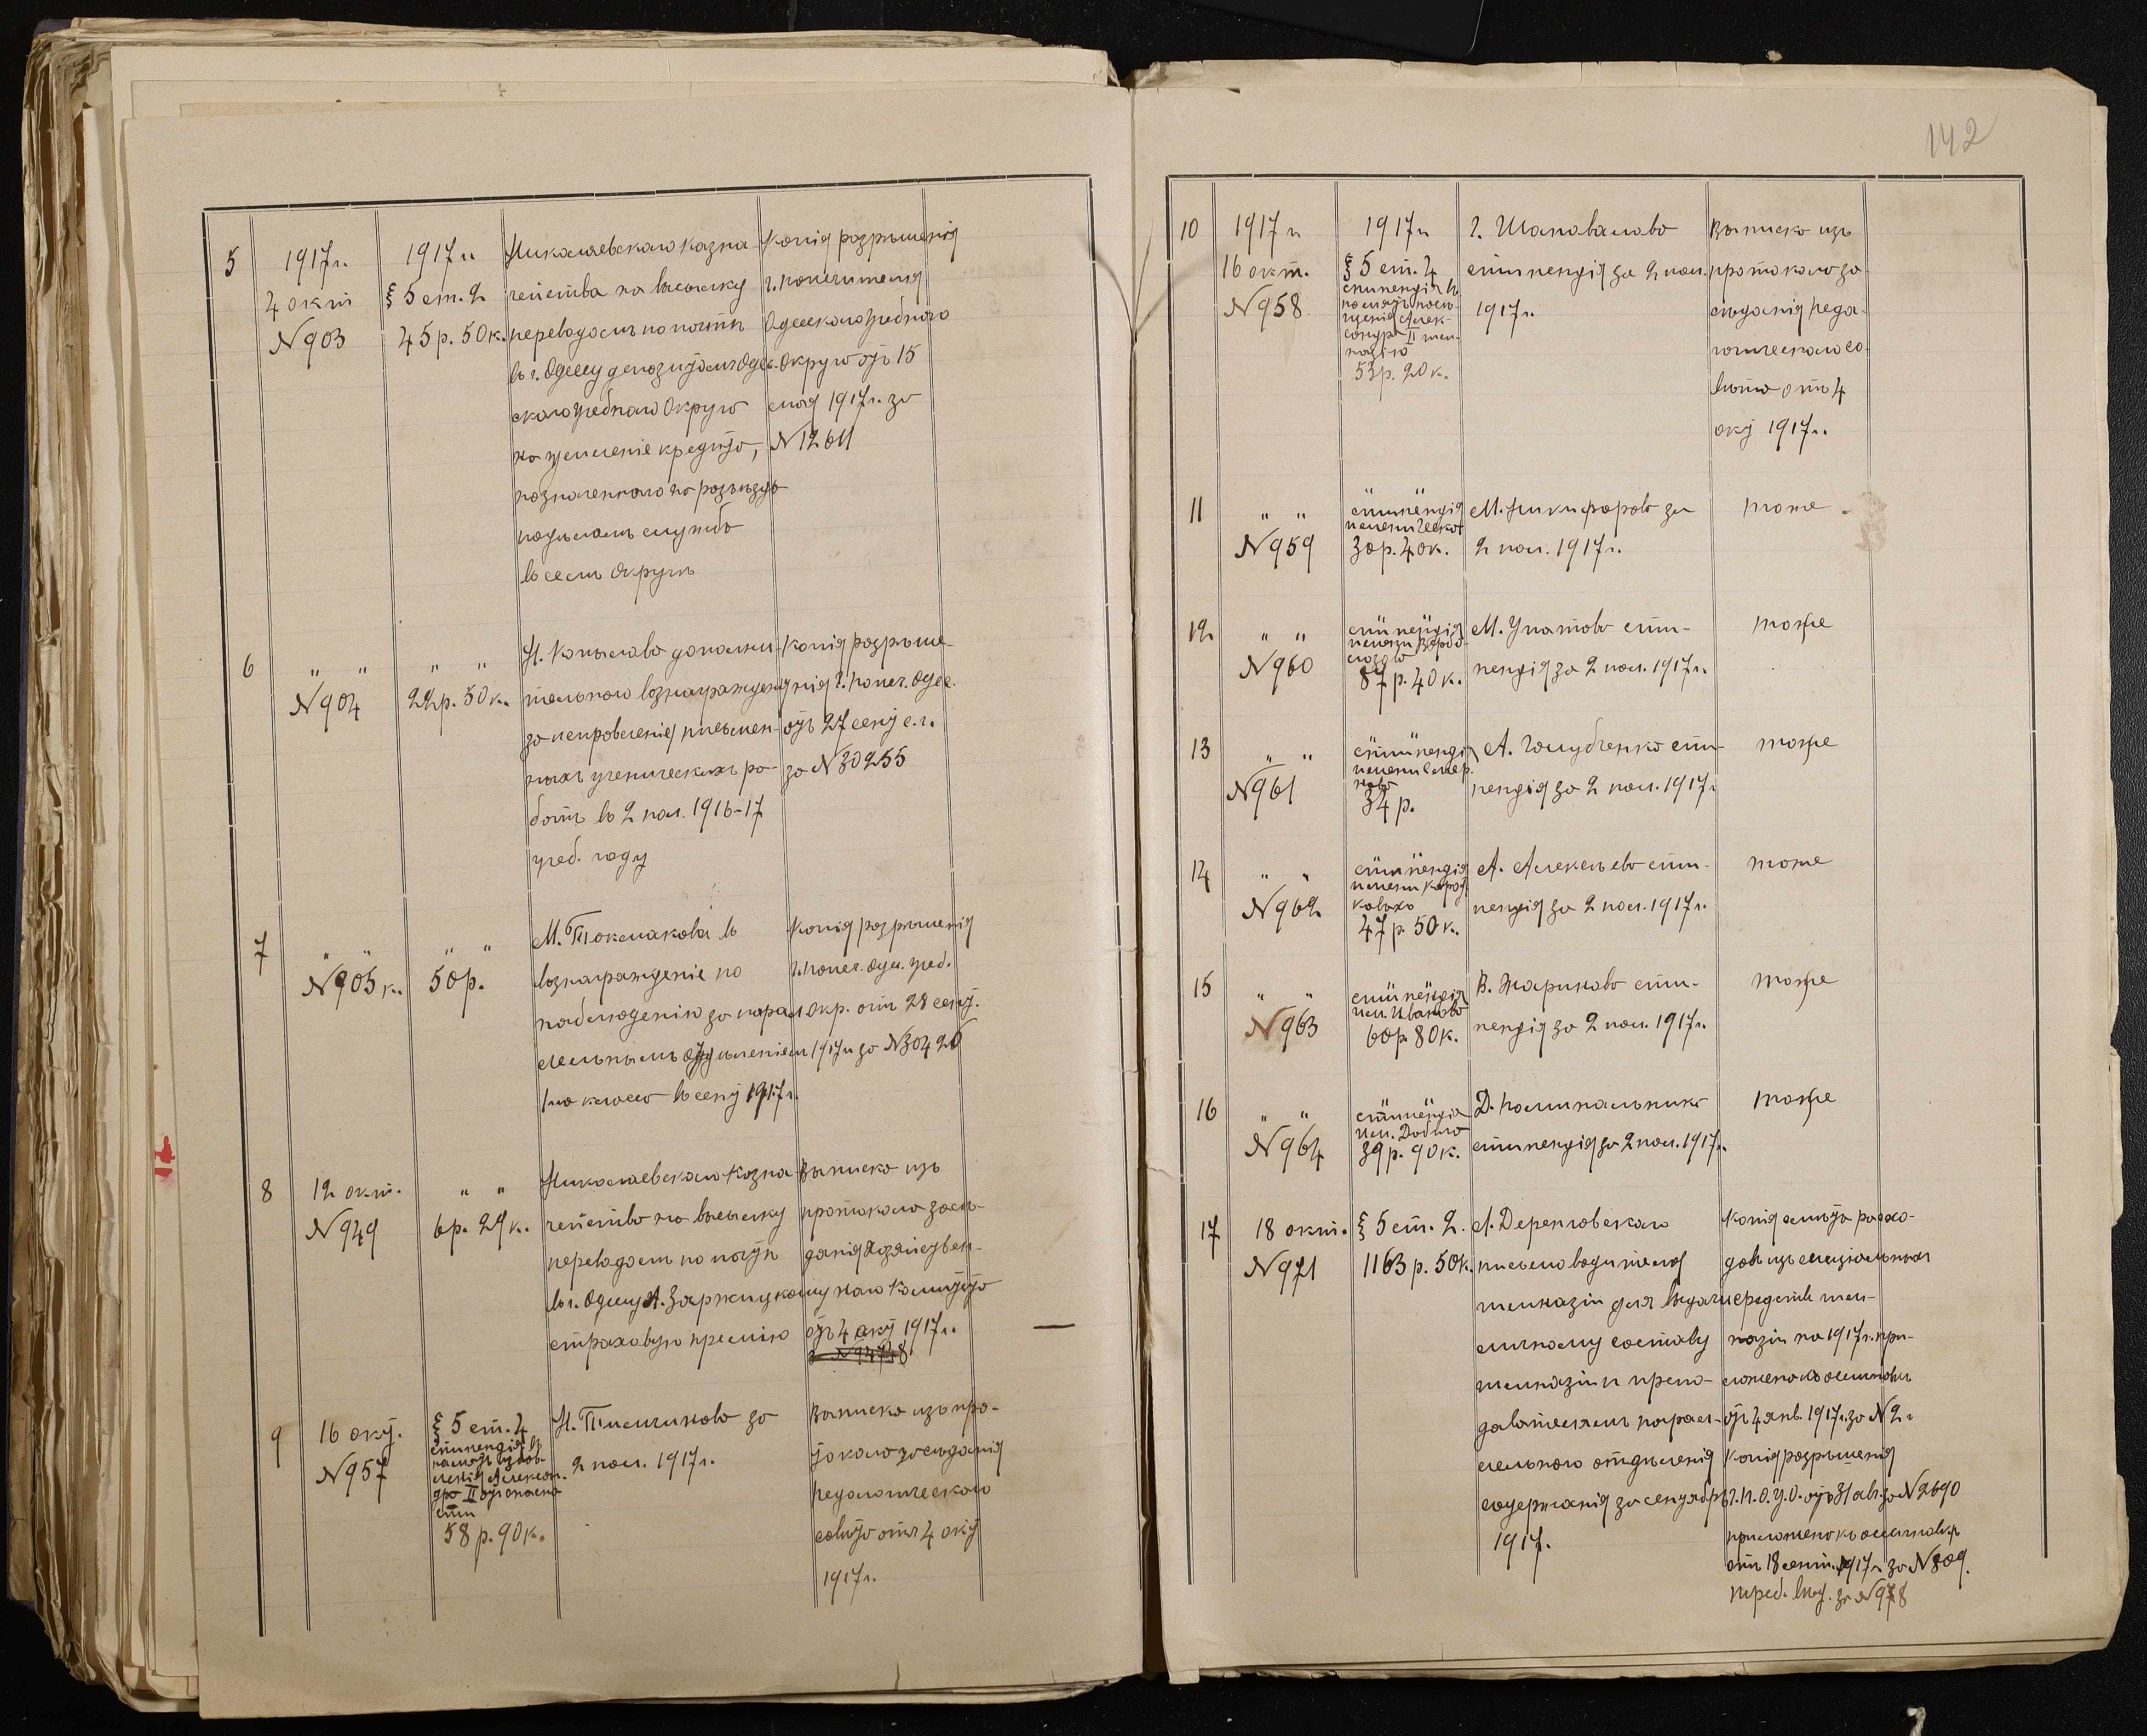 142
5
1917г.
4 окт
N 903
1917г.
§ 5 ст. 2
45 р. 50 к.
Николаевскаго казна-
чейства на высылку
переводомъ по почтѣ
въ г. Одессу депозитамъ Одес-
скаго учебнаго Округа
назначеннаго на разъѣзды
въ семъ Округѣ
Копія разрѣшенія
г. попечителя
Одесскаго учебнаго
Округа отъ 15
мая 1917 г. за
N 12611
6
" "
N 904
" "
22 р. 50 к.
Н. Копылова дополни-
тельного вознагражденія
за исправленія письмен-
ныхъ ученическихъ ра-
ботъ въ 2 пол. 1916-17
учеб. году
Копія разрѣше-
нія г. попеч. Одес.
отъ 27 сент с.г.
за N 30255
7
" "
N 905 к.
" "
50 р.
М. Токмакова въ
вознагражденіе по
наблюденію за парал-
лельнымъ отдѣленіем
1го класса въ сент 1917 г.
Копія разрѣшенія
г. попеч. Одес. учеб.
окр. отъ 28 сент.
1917 г за N 30420
8
12 окт.
N 949
" "
6 р. 29 к.
Николаевскаго Казна-
чейства на высылку
переводомъ по почтѣ
въ г. Одессу А. Заржицкому
страховую премію
Выписка изъ
протокола засѣ-
данія Хозяйствен-
наго Комитета
отъ 4 окт 1917 г.
9
16 окт.
N 957
§ 5 ст. 4
стипендія въ
память избав-
ленія Алексан-
дра II отъ опасно
сти
58 р. 90 к.
Н. Тимчинова за
2 пол. 1917 г.
Выписка изъ про-
токола засѣданія
педагогическаго
совѣта отъ 4 окт
1917 г.
10
1917 г
16 окт.
N 958
1917 г
§ 5 ст. 4
стипендія въ
память посѣ-
щенія Алек-
сандра II гим-
назію
53 р. 20 к.
Г. Шаповалова
стипендія за 2 пол.
1917 г.
Выписка изъ
протокола за-
сѣданія педа-
гогическаго со-
вѣта отъ 4
окт 1917 г.
11
" "
N 959
стипендія
30 р. 40 к.
М. Никифорова за
2 пол. 1917 г.
тоже
12
" "
N 960
стипендія
имени
87 р. 40 к.
М. Ипатова стип-
пендія за 2 пол. 1917 г.
тоже
13
" "
N 961
стипендія
имени
34 р.
А. Голубченко стип-
пендія за 2 пол. 1917 г
тоже
14
" "
N 962
стипендія
имени
47 р. 50 к.
А. Алексѣева стип-
пендія за 2 пол. 1917 г.
тоже
15
" "
N 963
стипендія
им. Иванова
60 р. 80 к.
В. Жарикова стип-
пендія за 2 пол. 1917 г.
тоже
16
" "
N 964
стипендія
39 р. 90 к.
Д.
стипендія за 2 пол. 1917 г.
тоже
17
18 окт.
N 971
§ 5 ст. 2.
1163 р. 50 к.
А. Деренговскаго
письмоводителя
гимназіи для выдачи
личному составу
гимназіи и препо-
давателямъ парал-
лельнаго отдѣленія
содержанія за сентябрь
1917.
Копія смѣты расхо-
довъ изъ спеціальныхъ
средствъ гим-
назіи на 1917 г. при-
ложена къ
отъ 4 янв. 1917 г. за N 2 и
копія разрѣшенія
г. П. О. У. О. отъ 31 авг. за N 2690
приложено къ
отъ 18 сент. 1917 г за N 809.
треб. вѣд. за N 978